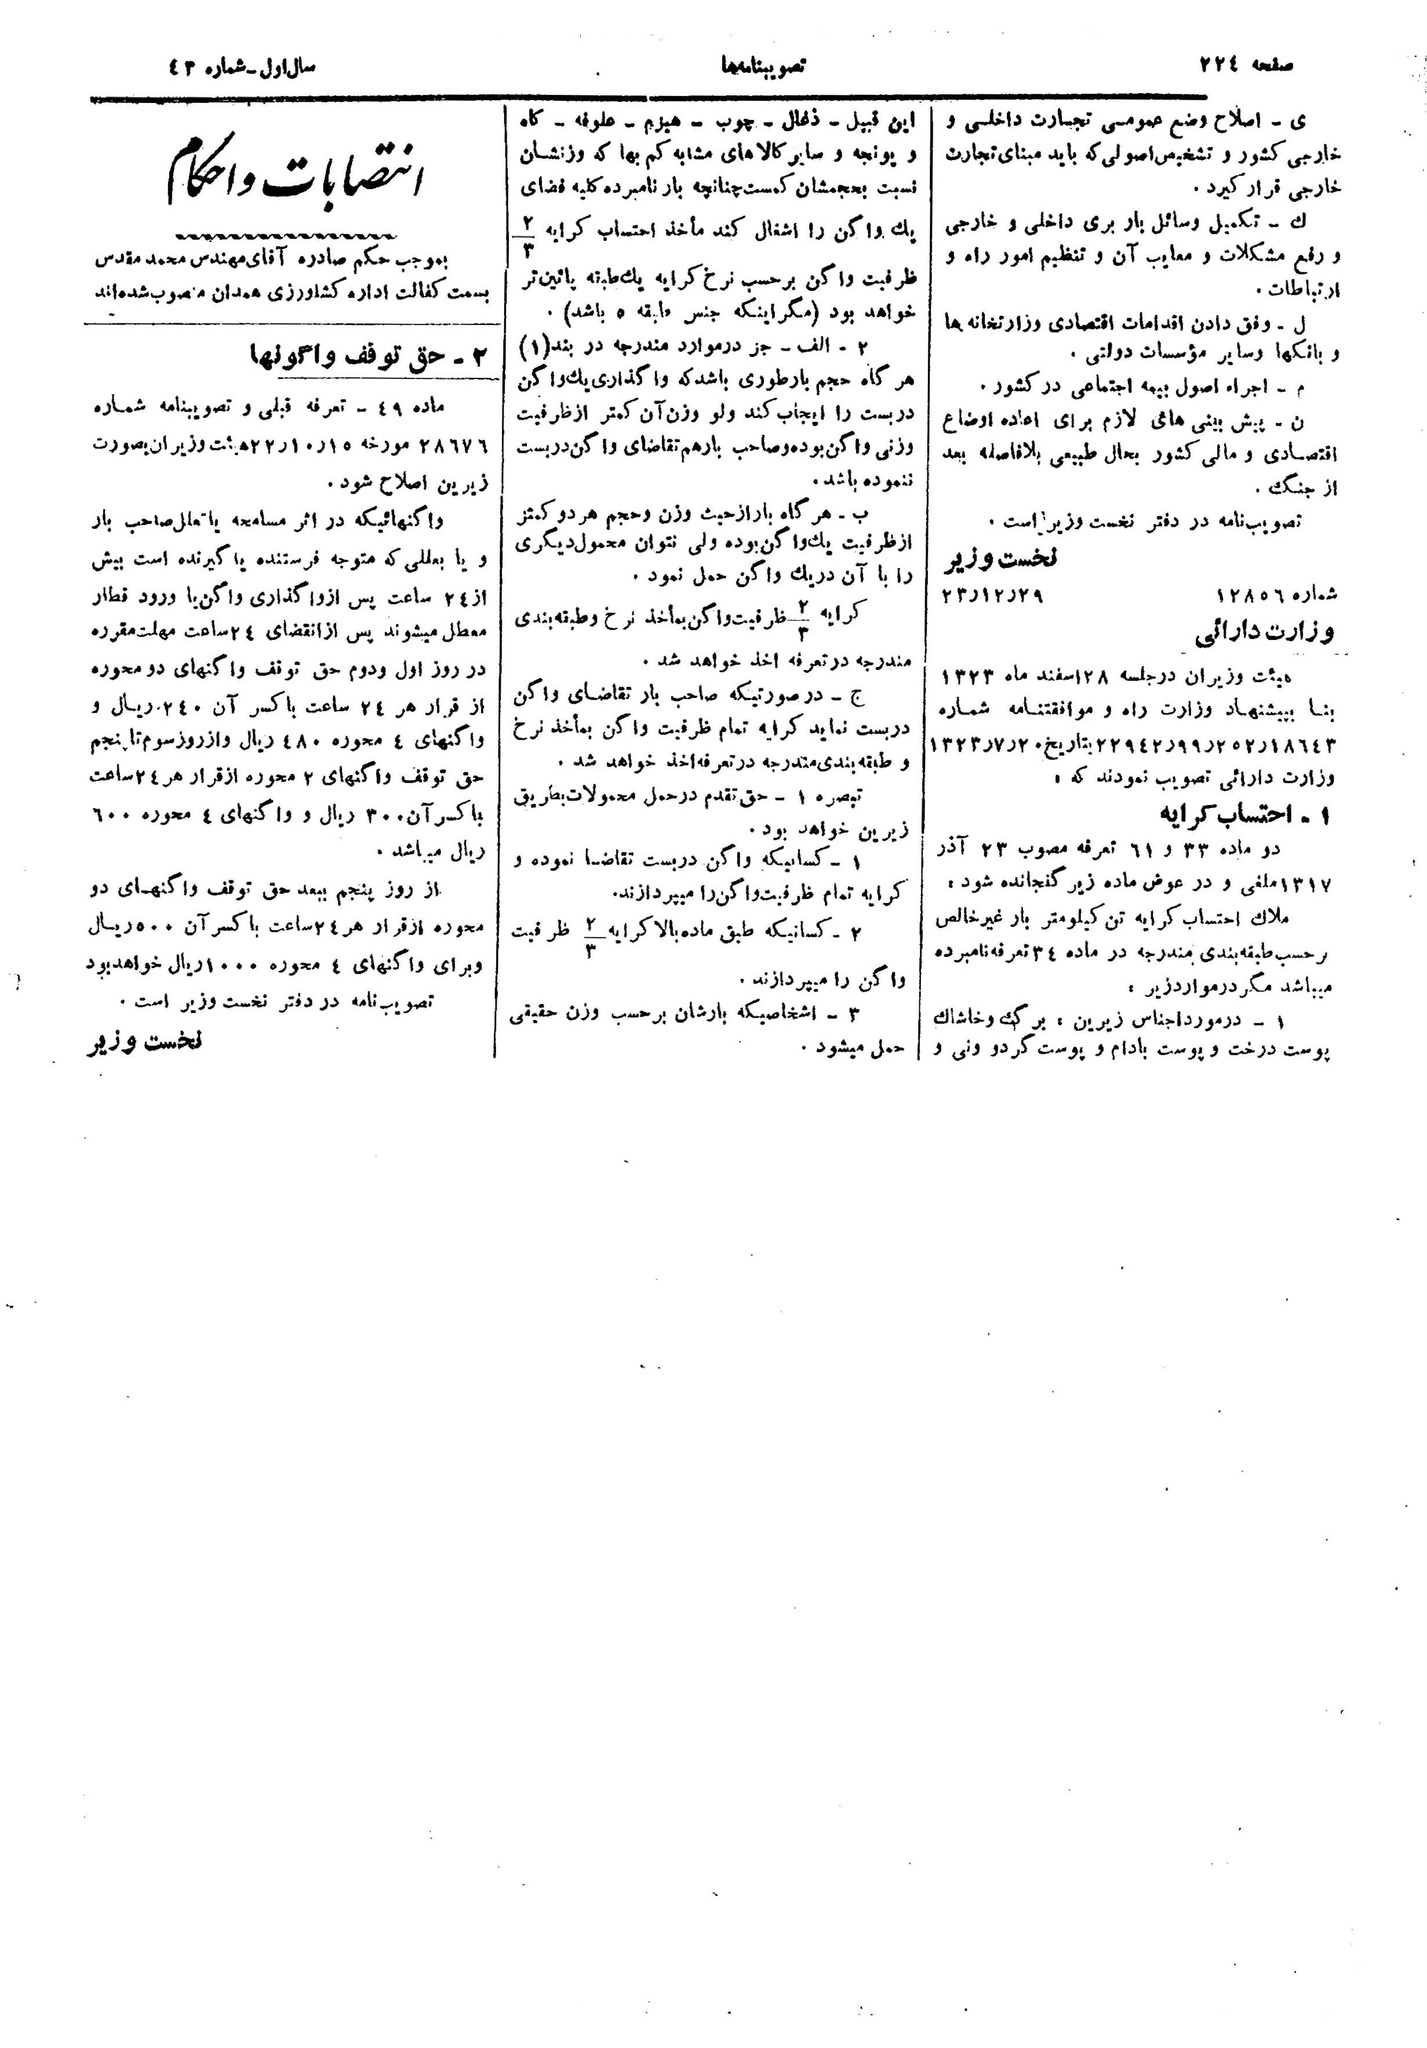 صفحه ۲۲۴
تصویبنامه‌ها
سال اول ـ شماره ۴۳
ی ـ اصلاح وضع عمومی تجارت داخلی و
خارجی کشور و تشخیص اصولی که باید مبنای تجارت
خارجی قرار گیرد.
ك ـ تکمیل وسائل بار بری داخلی و خارجی
و رفع مشکلات و معایب آن و تنظیم امور راه و
ارتباطات.
ل ـ وفق دادن اقدامات اقتصادی وزارتخانه ها
و بانکها وسایر مؤسسات دولتی.
م ـ اجراء اصول بیمه اجتماعی در کشور.
ن ـ پیش بینی های لازم برای اعاده اوضاع
اقتصادی و مالی کشور بحال طبیعی بلافاصله بعد
از جنگ.
تصویب‌نامه در دفتر نخست وزیر است.
نخست وزیر
شماره ۱۲۸۵۶ ۲۳٫۱۲٫۲۹
وزارت دارائی
هیئت وزیران درجلسه ۲۸ اسفند ماه ۱۳۲۳
بنا بپیشنهاد وزارت راه و موافقتنامه شماره
۲۲۹۴۲٫۹۹٫۲۵۲٫۱۸۶۴۳ بتاریخ ۱۳۲۳٫۷٫۲۰
وزارت دارائی تصویب نمودند که :
۱ ـ احتساب کرایه
دو ماده ۳۳ و ۶۱ تعرفه مصوب ۲۳ آذر
۱۳۱۷ ملغی و در عوض ماده زیر گنجانده شود :
ملاك احتساب کرایه تن کیلومتر بار غیرخالص
برحسب طبقه بندی مندرجه در ماده ۳۴ تعرفه نامبرده
میباشد مگر درمواردزیر :
۱ ـ درمورداجناس زیرین : برگ وخاشاك
پوست درخت و پوست بادام و پوست گردو ونی و
این قبیل ـ ذغال ـ چوب ـ هیزم ـ علوفه ـ کاه
و یونجه و سایر کالاهای مشابه کم بها که وزنشان
نسبت بحجمشان کمست چنانچه بار نامبرده کلیه فضای
یك واگن را اشغال کند مأخذ احتساب کرایه ۲/۳
ظرفیت واگن برحسب نرخ کرایه یك طبقه پائین تر
خواهد بود (مگر اینکه جنس طبقه ۵ باشد).
۲ ـ الف ـ جز درموارد مندرجه در بند (۱)
هر گاه حجم بارطوری باشد که واگذاری یك واگن
دربست را ایجاب کند ولو وزن آن کمتر از ظرفیت
وزنی واگن بوده و صاحب بارهم تقاضای واگن دربست
ننموده باشد.
ب ـ هر گاه باراز حیث وزن وحجم هر دو کمتر
از ظرفیت یك واگن بوده ولی نتوان محمول دیگری
را با آن در یك واگن حمل نمود.
کرایه ۲/۳ ظرفیت واگن بمأخذ نرخ وطبقه بندی
مندرجه در تعرفه اخذ خواهد شد.
ج ـ در صورتیکه صاحب بار تقاضای واگن
دربست نماید کرایه تمام ظرفیت واگن بمأخذ نرخ
و طبقه بندی مندرجه در تعرفه اخذ خواهد شد.
تبصره ۱ ـ حق تقدم در حمل محمولات بطریق
زیرین خواهد بود.
۱ ـ کسانیکه واگن دربست تقاضا نموده و
کرایه تمام ظرفیت واگن را میپردازند.
۲ ـ کسانیکه طبق ماده بالا کرایه ۲/۳ ظرفیت
واگن را میپردازند.
۳ ـ اشخاصیکه بارشان برحسب وزن حقیقی
حمل میشود.
انتصابات و احکام
بموجب حکم صادره آقای مهندس محمد مقدس
بسمت کفالت اداره کشاورزی همدان منصوب شده اند
۲ ـ حق توقف واگونها
ماده ۴۹ ـ تعرفه قبلی و تصویبنامه شماره
۲۸۶۷۶ مورخه ۲۲٫۱۰٫۱۵ هیئت وزیران بصورت
زیرین اصلاح شود.
واگنهائیکه در اثر مسامحه یا تعلل صاحب بار
و یا بعللی که متوجه فرستنده یا گیرنده است بیش
از ۲۴ ساعت پس ازواگذاری واگن یا ورود قطار
معطل میشوند پس از انقضای ۲۴ ساعت مهلت مقرره
در روز اول ودوم حق توقف واگنهای دو محوره
از قرار هر ۲۴ ساعت یا کسر آن ۲۴۰ ریال و
واگنهای ۴ محوره ۴۸۰ ریال واز روز سوم تا پنجم
حق توقف واگنهای ۲ محوره ازقرار هر ۲۴ ساعت
یا کسر آن ۳۰۰ ریال و واگنهای ۴ محوره ۶۰۰
ریال میباشد.
از روز پنجم ببعد حق توقف واگنهای دو
محوره ازقرار هر ۲۴ ساعت یا کسر آن ۵۰۰ ریال
وبرای واگنهای ۴ محوره ۱۰۰۰ ریال خواهد بود
تصویب نامه در دفتر نخست وزیر است.
نخست وزیر